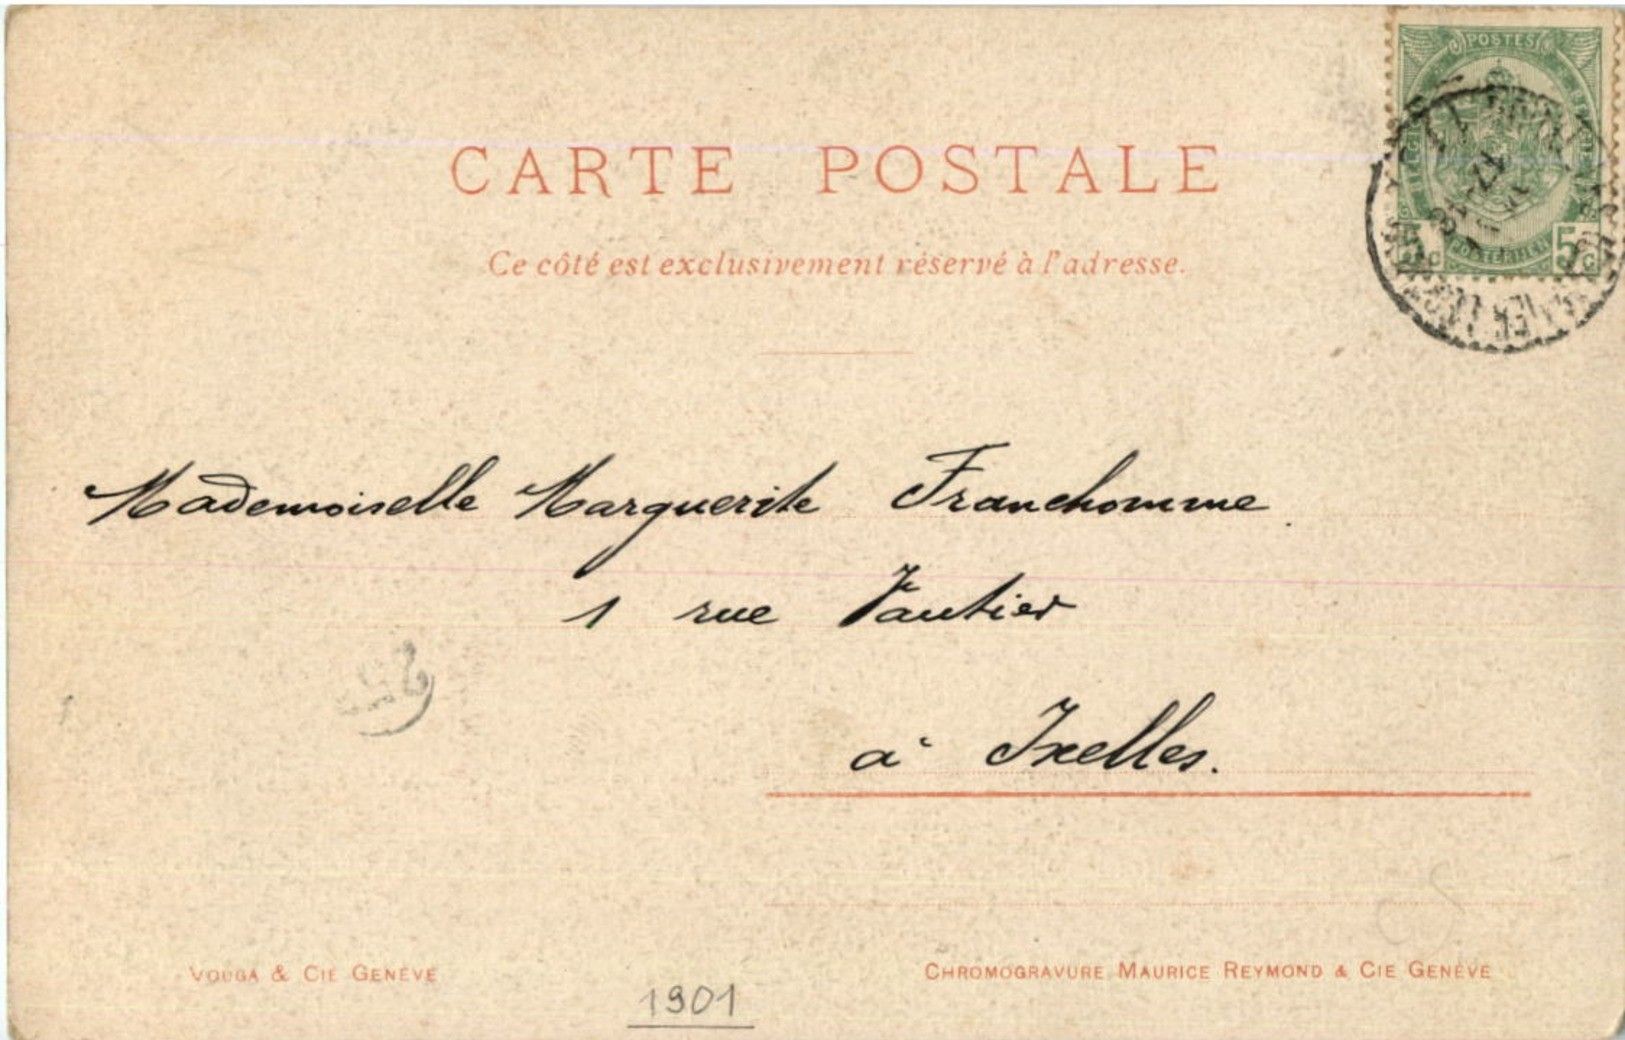 POSTES
BELGIQUE
5 c
CARTE POSTALE
Ce côté est exclusivement réservé à l'adresse.
Mademoiselle Marguerite Franchomme.
1 rue Vautier
à Ixelles.
VOUGA & CIE GENÈVE
CHROMOGRAVURE MAURICE REYMOND & CIE GENÈVE
1901